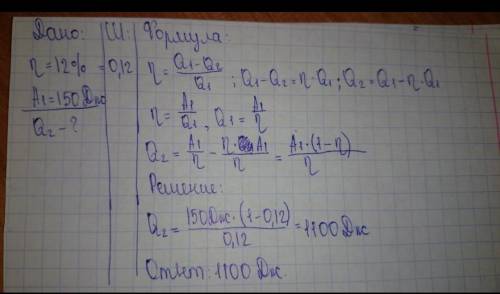 Дано: СИ: Формула:
η=12% =0,12 η = (Q1-Q2)/Q1 ; Q1-Q2=η·Q1 ; Q2=Q1-η·Q1
A1=150Дж η = A1/Q1 , Q1 = A1/η
Q2-? Q2 = A1/η - η·A1/η = A1·(1-η)/η
Решение:
Q2 = 150Дж·(1-0,12)/0,12 = 1100Дж
Ответ: 1100Дж.